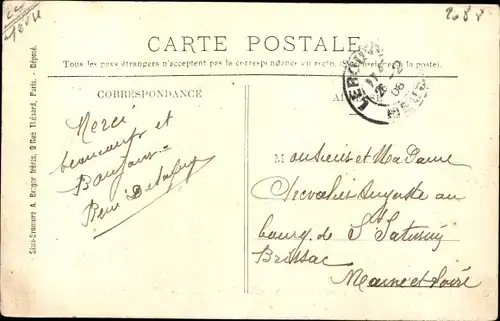 2058
CARTE POSTALE
Tous les pays étrangers n'acceptent pas la correspondance au recto. (Se renseigner à la poste).
CORRESPONDANCE
Merci
beaucoup et
Bonjour
René
Monsieur et Madame
Chevalier Auguste au
bourg de St Saturnin
Brissac
Maine et Loire
Simili-Bromure A. Breger frères, 9 Rue Thénard, Paris. - Déposé.